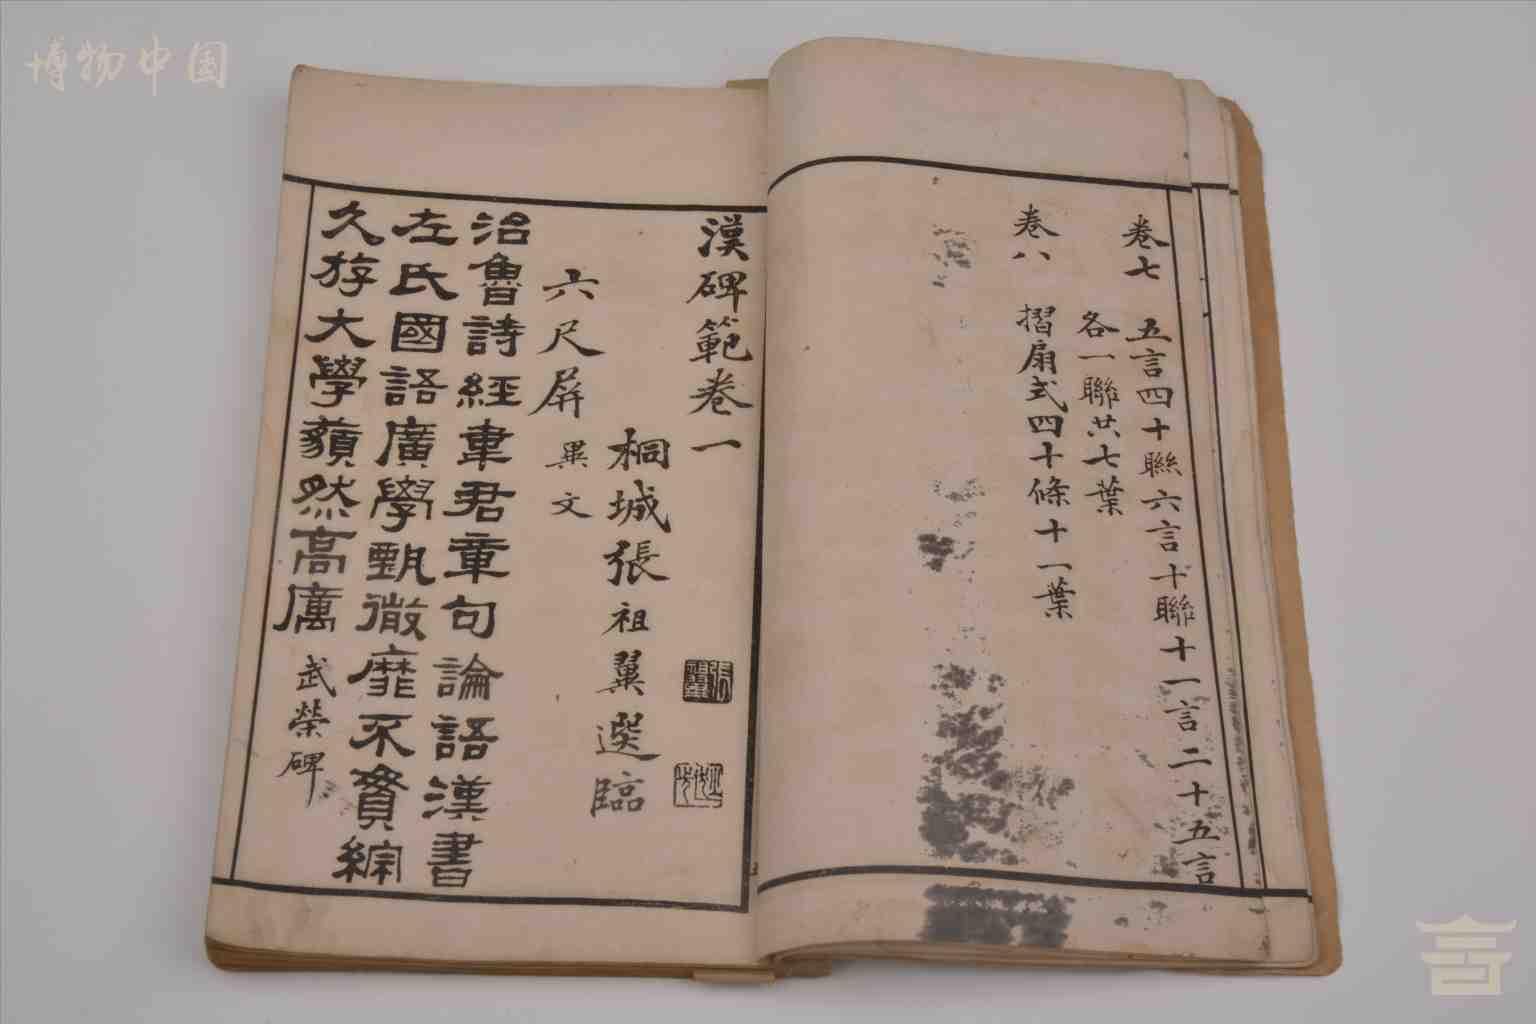 博物中国
卷七 五言四十聯六言十聯十一言二十五言
各一聯共七葉
卷八 摺扇式四十條十一葉
漢碑範卷一
桐城張祖翼選臨
張祖翼
六尺屏 文
治魯詩經韋君章句論語漢書
左氏國語廣學甄微靡不貫綜
久游大學藐然高厲 武榮碑